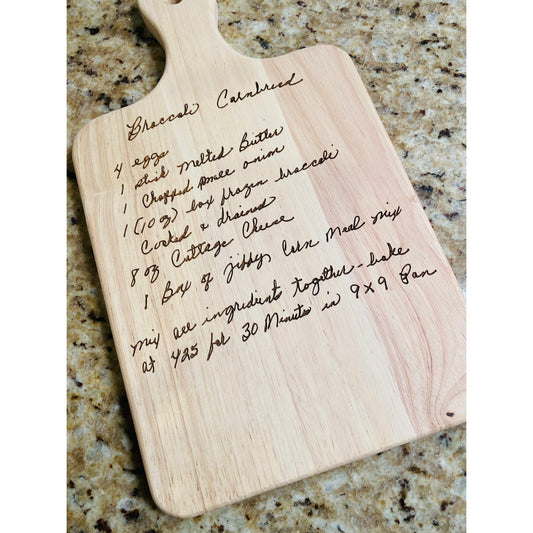 Broccoli Cornbread
4 eggs
1 stick melted Butter
1 Chopped small onion
1 (10 oz) box frozen broccoli
Cooked & drained
8 oz Cottage Cheese
1 Box of Jiffy Corn Meal mix
mix all ingridients together - bake
at 425 for 30 Minutes in 9x9 Pan